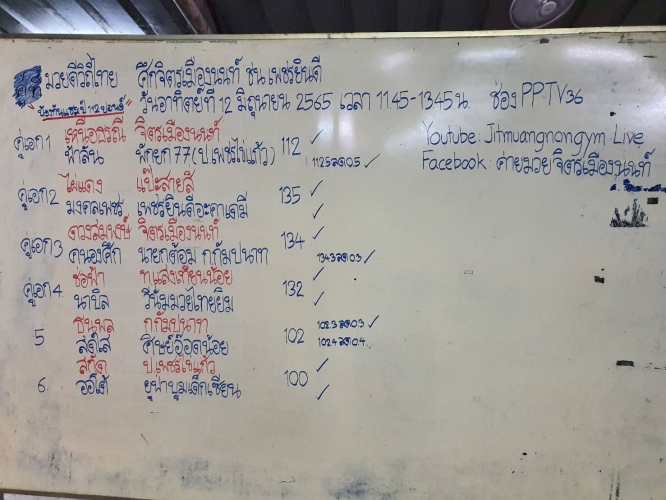 มวยดีวิถีไทย ศึกจิตรเมืองนนท์ ชน เพชรยินดี
"ป้องกันแชมป์ 112 ปอนด์" วันอาทิตย์ที่ 12 มิถุนายน 2565 เวลา 11.45-13.45 น. ช่อง PPTV36
คู่เอก 1 เหนือธรณี จิตรเมืองนนท์ 112 ✓ Youtube: Jitmuangnongym Live
ฟ้าลั่น พักยก77 (ป.เพชรไข่แก้ว) 112.5 ลด 0.5 ✓ Facebook: ค่ายมวย จิตรเมืองนนท์
คู่เอก 2 ไผ่แดง แป๊ะสายสี 135 ✓
มงคลเพชร เพชรยินดีอะคาเดมี่ ✓
คู่เอก 3 ดวงสมพงษ์ จิตรเมืองนนท์ 134 ✓
คนองศึก นายกต้อม กกัมปนาท 134.3 ลด 0.3 ✓
คู่เอก 4 ช่อฟ้า ท.แสงเทียนน้อย 132 ✓
นาบิล วีนั่มมวยไทยยิม ✓
5 ธนพล กกัมปนาท 102 102.3 ลด 0.3 ✓
สดใส ศิษย์อ๊อดน้อย 102.4 ลด 0.4 ✓
6 สกัด ป.เพชรไข่แก้ว 100 ✓
ออโต้ ✓